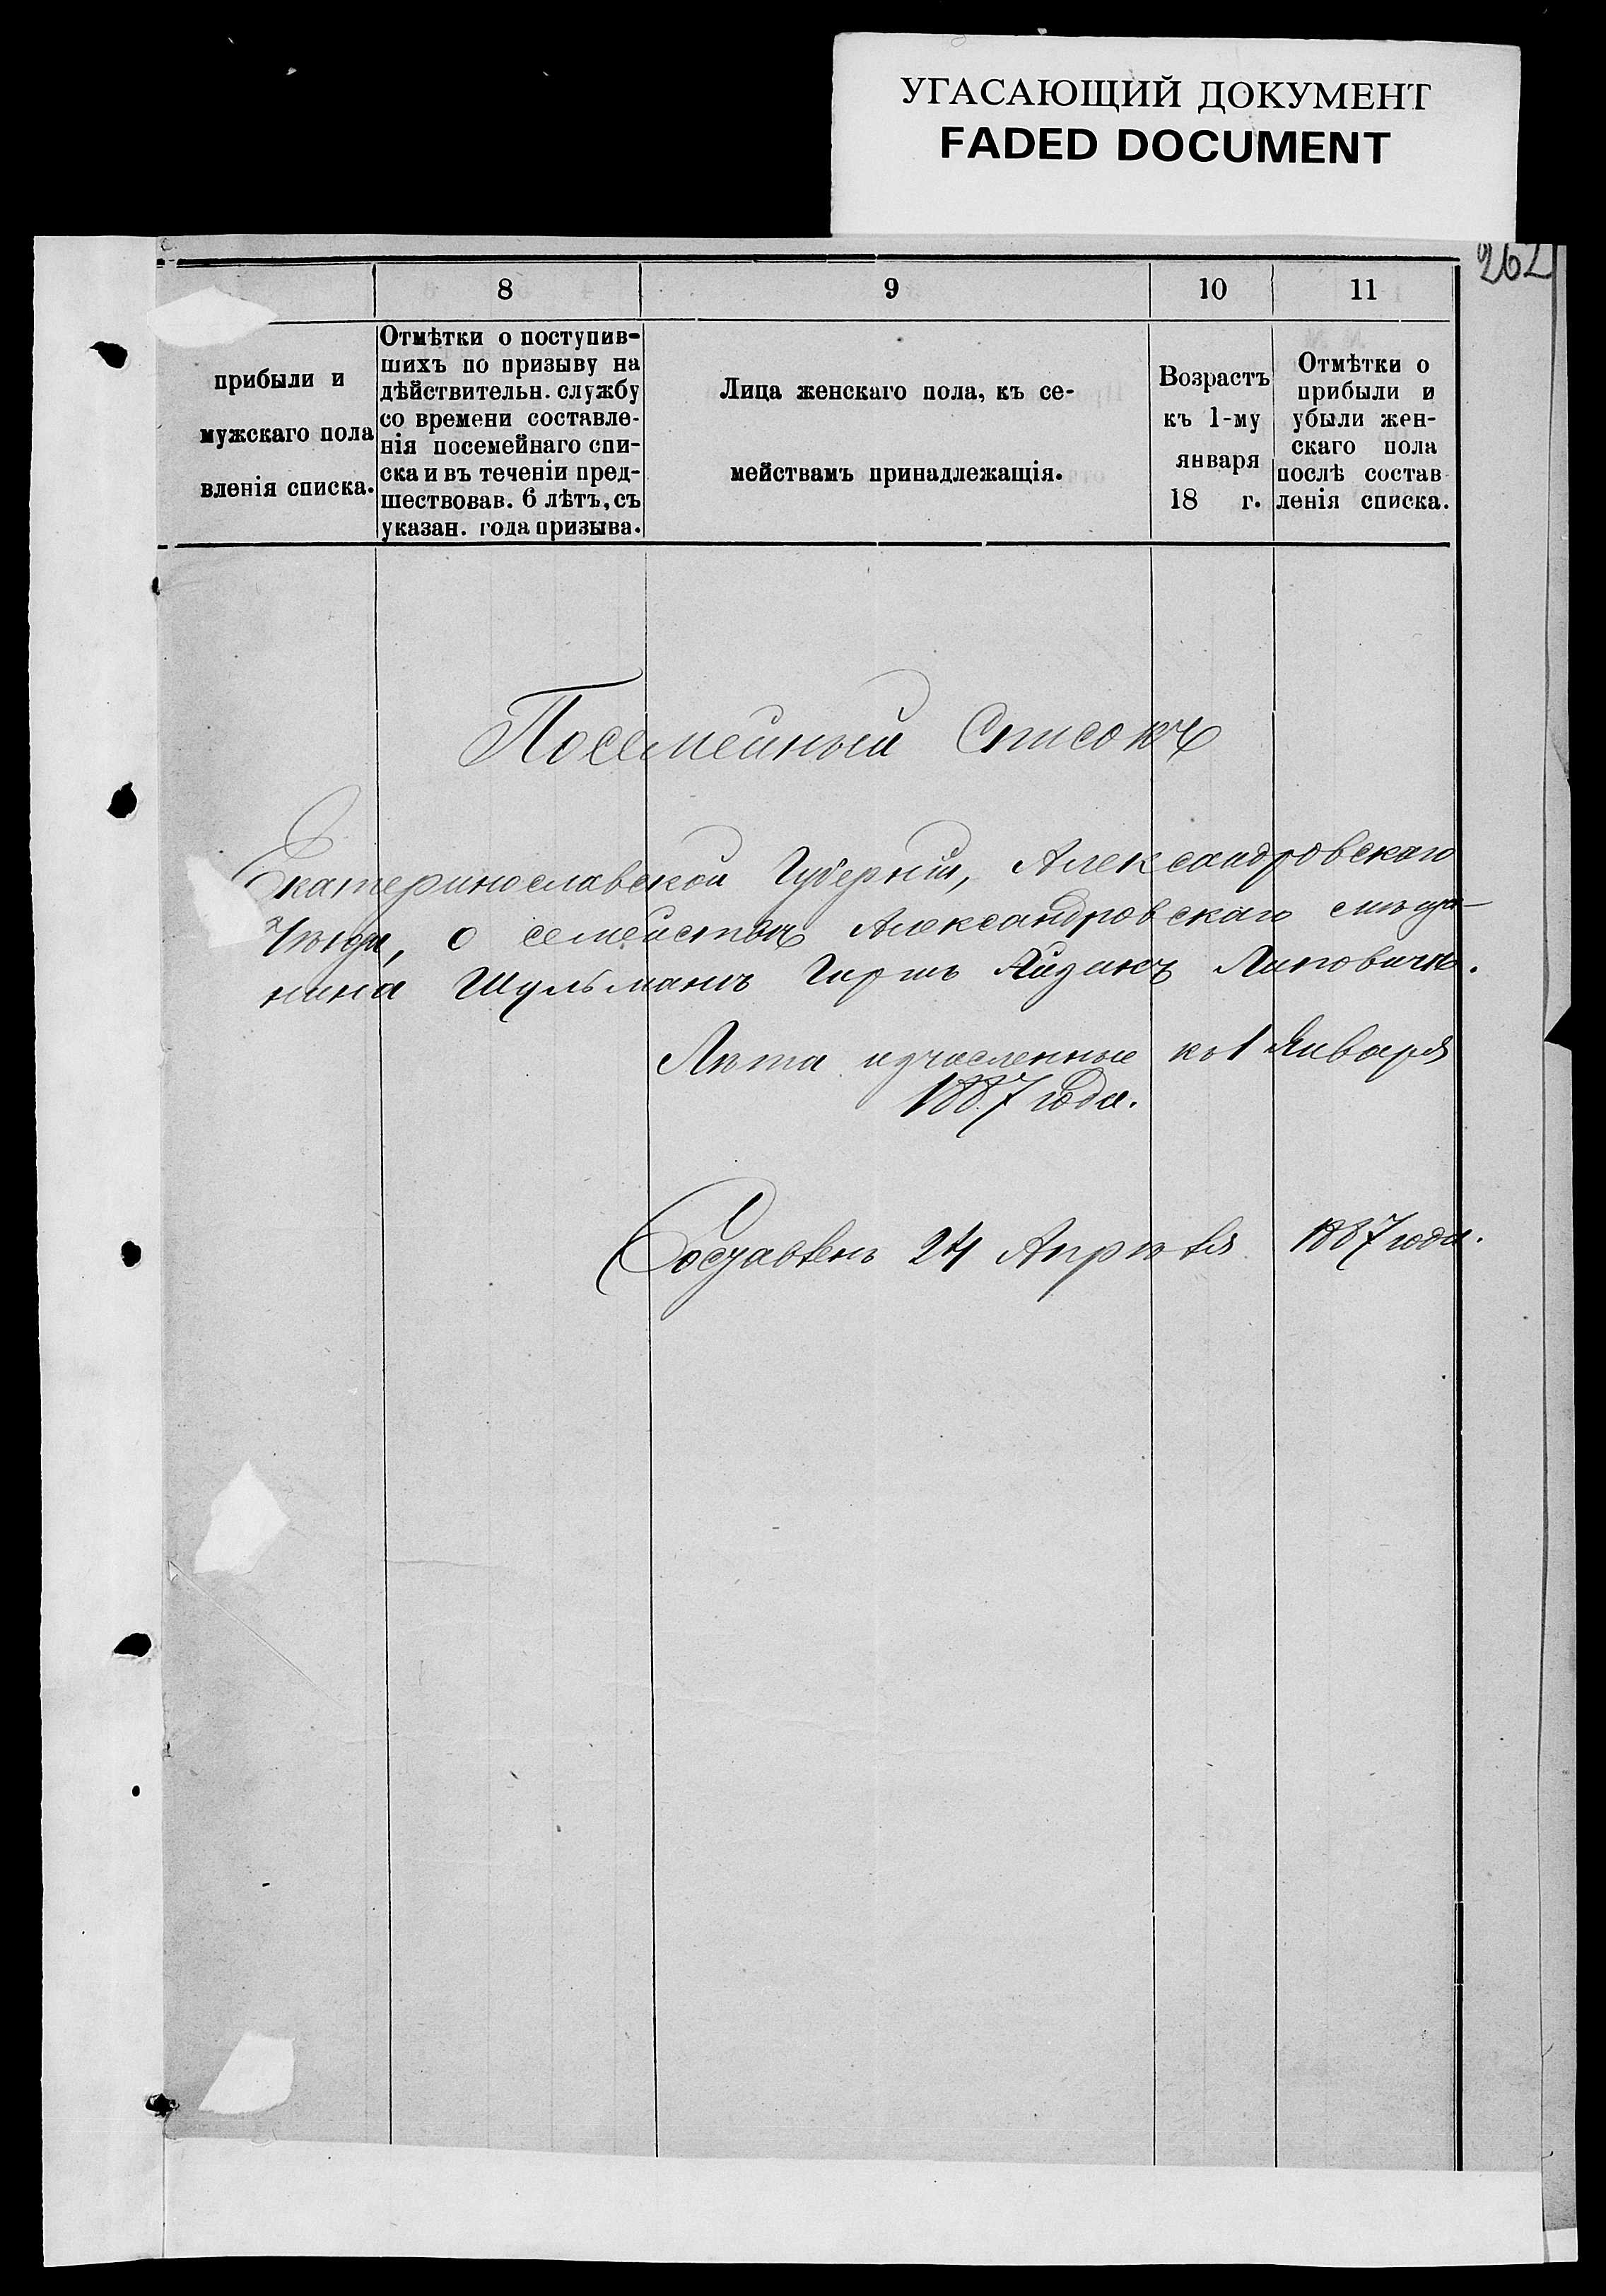 УГАСАЮЩИЙ ДОКУМЕНТ
FADED DOCUMENT
262
8 9 10 11
прибыли и
мужскаго пола
вленія списка.
Отмѣтки о поступив-
шихъ по призыву на
дѣйствительн. службу
со времени составле-
нія посемейнаго спи-
ска и въ теченіи пред-
шествовав. 6 лѣтъ, съ
указан. года призыва.
Лица женскаго пола, къ се-
мействамъ принадлежащія.
Возрастъ
къ 1-му
января
18 г.
Отмѣтки о
прибыли и
убыли жен-
скаго пола
послѣ состав
ленія списка.
Посемейный Списокъ
Екатеринославской Губерніи, Александровскаго
Уѣзда, о семействѣ Александровскаго мѣща-
нина Шульманъ Гиршъ Айзикъ Липовичъ.
Лѣта изчисленные къ 1 Января
1887 года.
Составленъ 24 Апрѣля 1887 года.